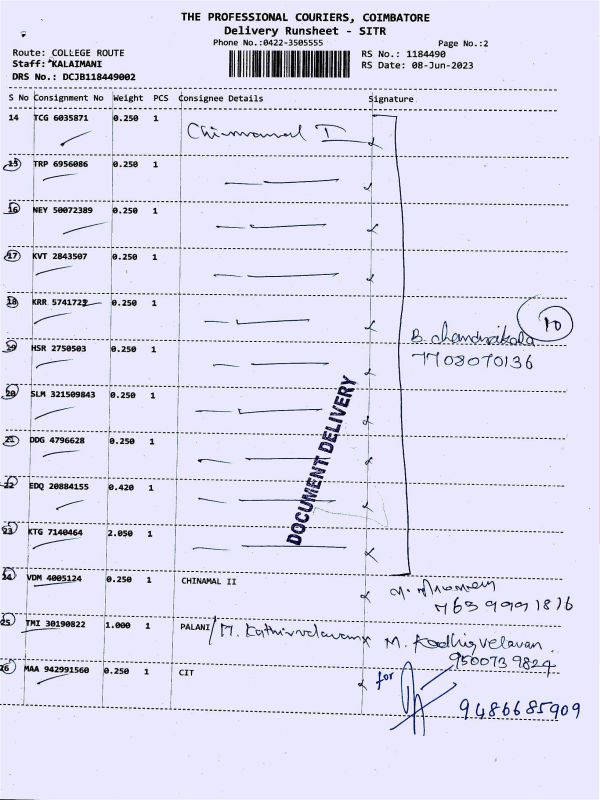 THE PROFESSIONAL COURIERS, COIMBATORE
Delivery Runsheet - SITR
Phone No.:0422-3505555 Page No.:2
Route: COLLEGE ROUTE RS No.: 1184490
Staff: KALAIMANI RS Date: 08-Jun-2023
DRS No.: DCJB118449002
S No Consignment No Weight PCS Consignee Details Signature
14 TCG 6035871 0.250 1 Chinnamal I
15 TRP 6956086 0.250 1
16 NEY 50072389 0.250 1
17 KVT 2843507 0.250 1
18 KRR 5741723 0.250 1
10
B. Chandrikala
19 HSR 2750503 0.250 1 7708070136
20 SLM 321509843 0.250 1
DOCUMENT DELIVERY
21 DDG 4796628 0.250 1
22 EDQ 20884155 0.420 1
23 KTG 7140464 2.050 1
24 VDM 4005124 0.250 1 CHINAMAL II
7639991876
25 TMI 30190822 1.000 1 PALANI / M. Kathirvelavan M. Kadhirvelavan.
9500739824
26 MAA 942991560 0.250 1 CIT for
9486685909